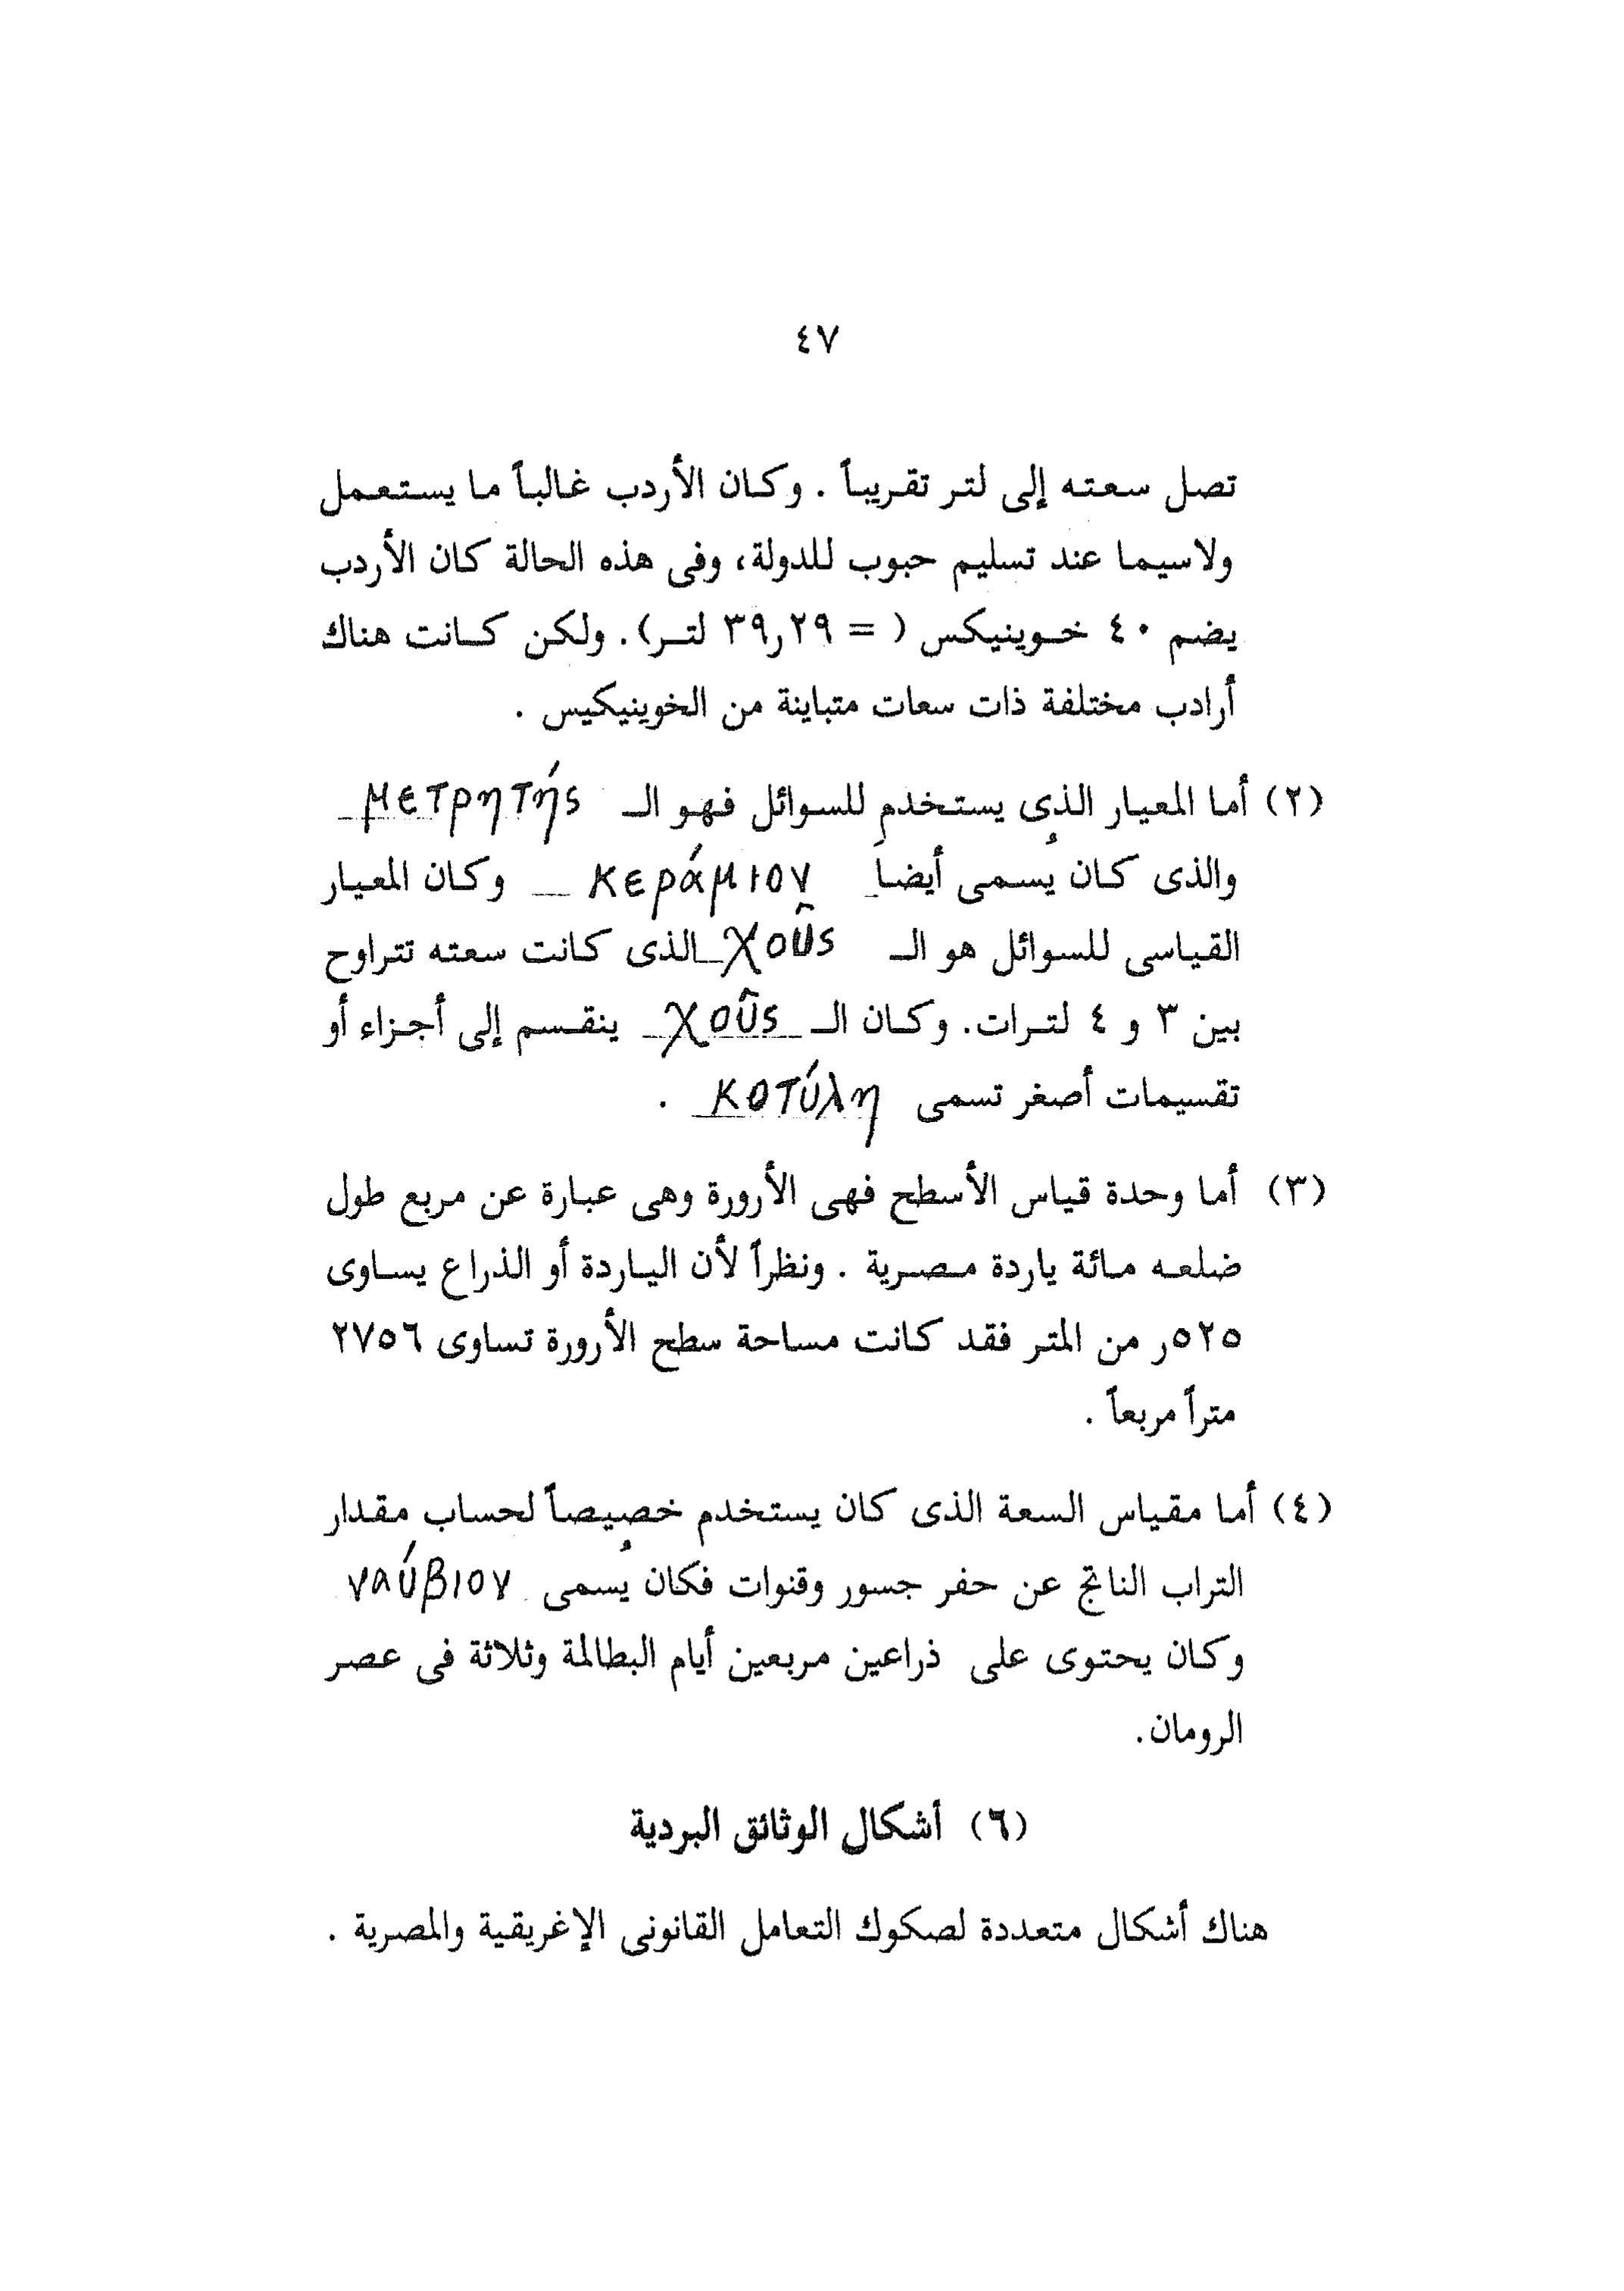 ٤٧
تصل سعته إلى لتر تقريباً . وكان الأردب غالباً ما يستعمل
ولاسيما عند تسليم حبوب للدولة، وفى هذه الحالة كان الأردب
يضم ٤٠ خوينيكس ( = ٣٩٫٢٩ لتر). ولكن كانت هناك
أرادب مختلفة ذات سعات متباينة من الخوينيكيس .
(٢) أما المعيار الذى يستخدم للسوائل فهو الـ μετρητής
والذى كان يُسمى أيضاً κεράμιον وكان المعيار
القياسى للسوائل هو الـ χοῦς الذى كانت سعته تتراوح
بين ٣ و ٤ لترات. وكان الـ χοῦς ينقسم إلى أجزاء أو
تقسيمات أصغر تسمى κοτύλη .
(٣) أما وحدة قياس الأسطح فهى الأرورة وهى عبارة عن مربع طول
ضلعه مائة ياردة مصرية . ونظراً لأن الياردة أو الذراع يساوى
٥٢٥ر من المتر فقد كانت مساحة سطح الأرورة تساوى ٢٧٥٦
متراً مربعاً .
(٤) أما مقياس السعة الذى كان يستخدم خصيصاً لحساب مقدار
التراب الناتج عن حفر جسور وقنوات فكان يُسمى ναύβιον
وكان يحتوى على ذراعين مربعين أيام البطالمة وثلاثة فى عصر
الرومان.
(٦) أشكال الوثائق البردية
هناك أشكال متعددة لصكوك التعامل القانونى الإغريقية والمصرية .